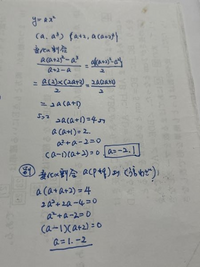 y = ax²
(a, a³) (a+2, a(a+2)²)
変化の割合
a(a+2)² - a³ / a+2-a = a{(a+2)²-a²} / 2
= a(2)×(2a+2) / 2 = 2a(2a+2) / 2
= 2a(a+1)
2a(a+1) = 4
a(a+1) = 2
a²+a-2=0
(a-1)(a+2)=0 a=-2,1
変化の割合 a(p+q)
a(a+a+2)=4
2a²+2a-4=0
a²+a-2=0
(a-1)(a+2)=0
a=1,-2